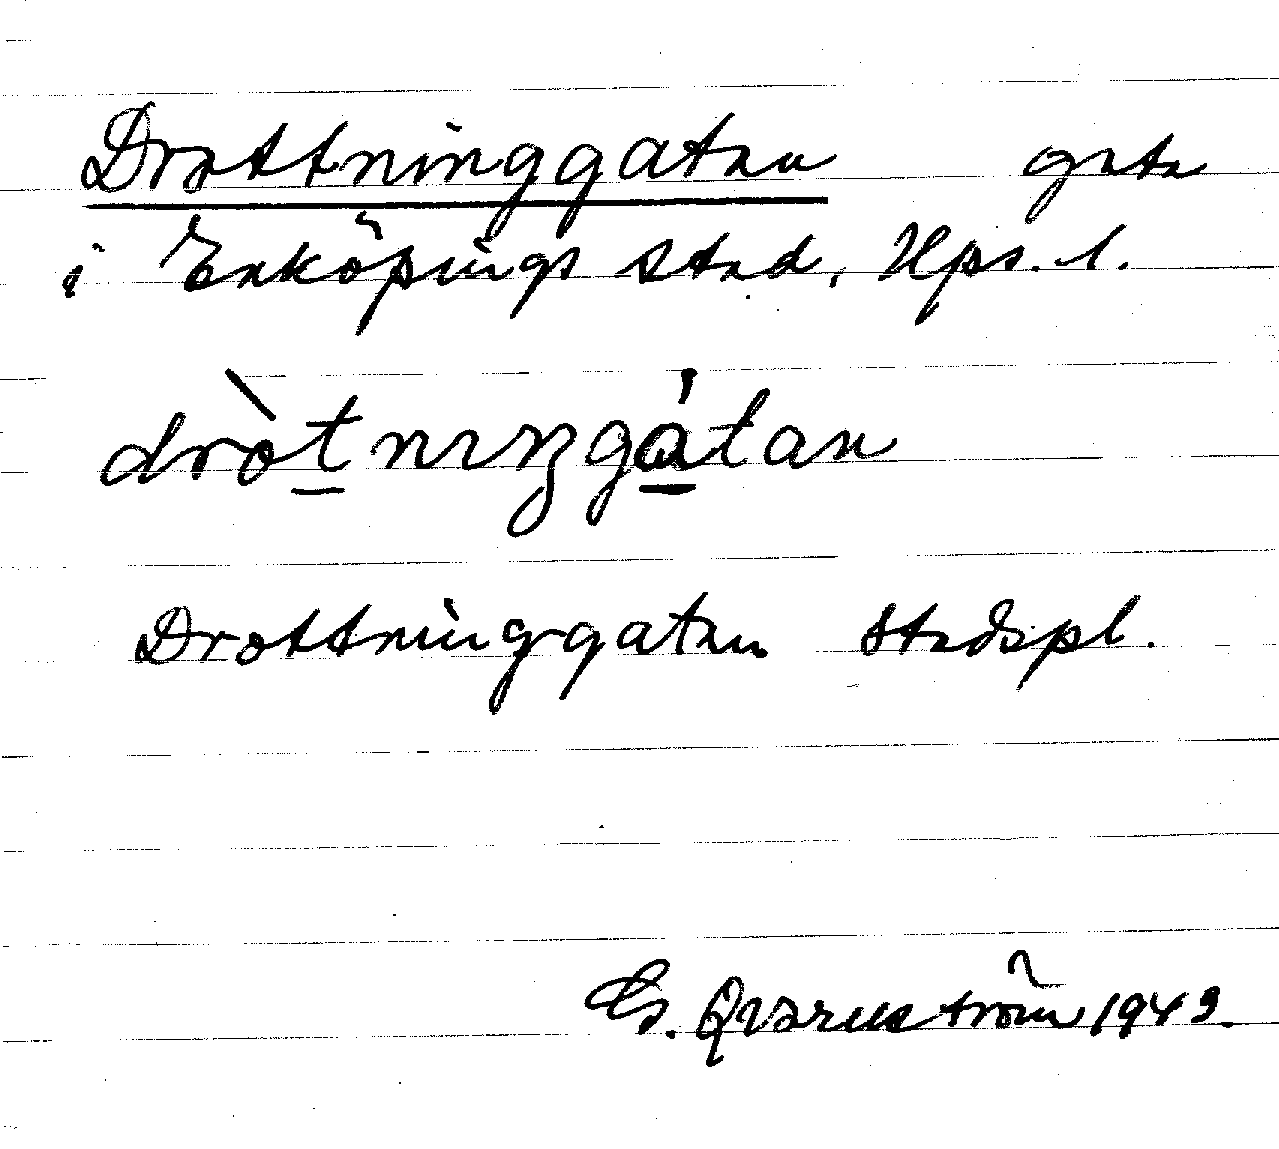 Drottninggatan gata
i Enköpings stad, Ups. l.
dròt̲nıŋgá̲tan
Drottninggatan Stadspl.
G. Qvarnström 1943.